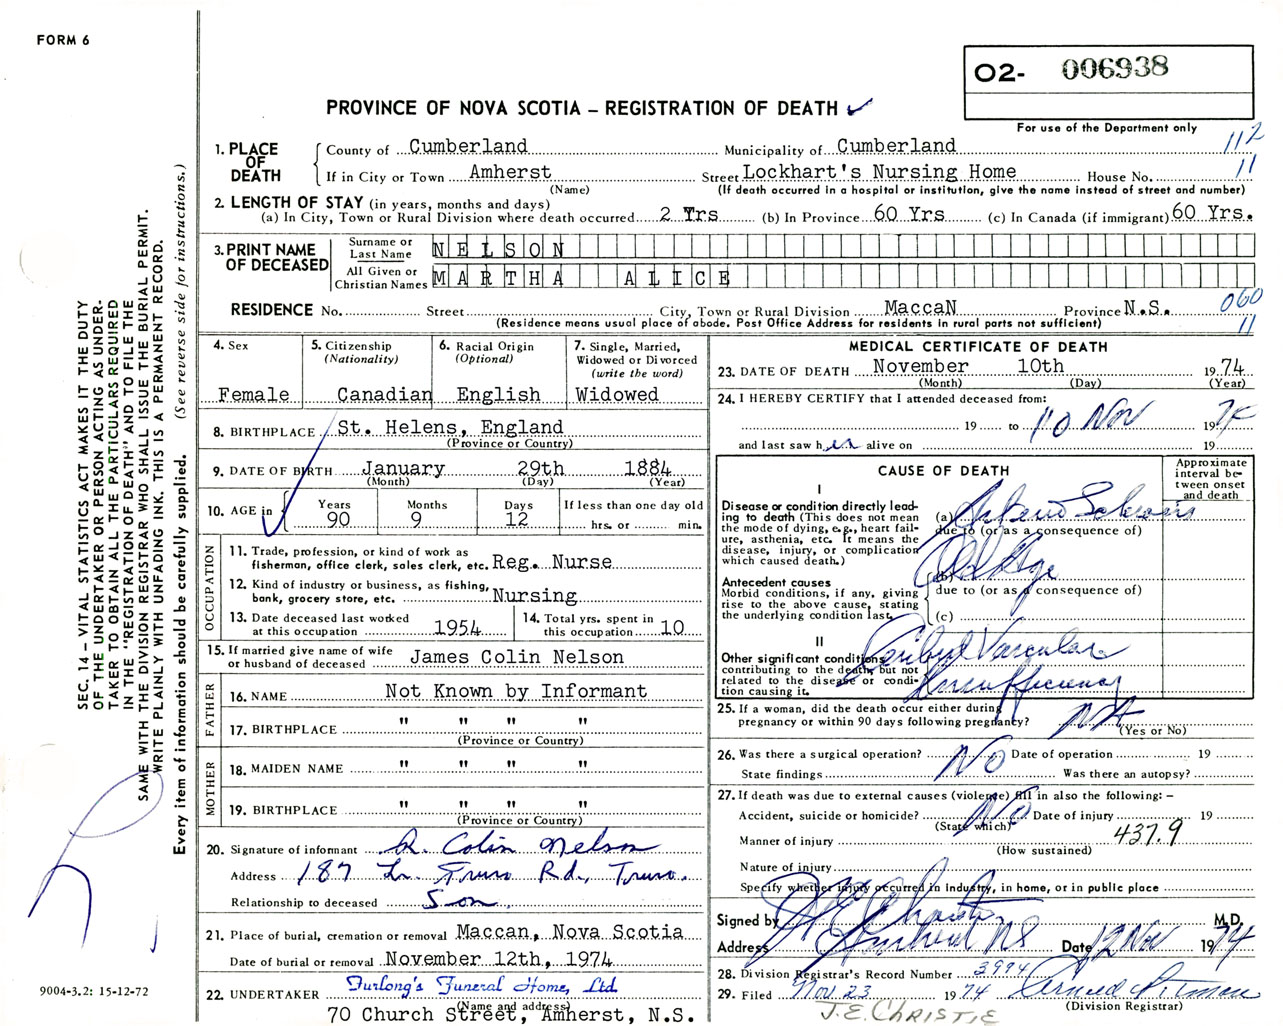 FORM 6
O2- 006938
PROVINCE OF NOVA SCOTIA – REGISTRATION OF DEATH ✓
For use of the Department only
112
11
1. PLACE OF DEATH
County of Cumberland Municipality of Cumberland
If in City or Town Amherst Street Lockhart's Nursing Home House No.
(Name) (If death occurred in a hospital or institution, give the name instead of street and number)
2. LENGTH OF STAY (in years, months and days)
(a) In City, Town or Rural Division where death occurred 2 Yrs (b) In Province 60 Yrs (c) In Canada (if immigrant) 60 Yrs.
3. PRINT NAME OF DECEASED
Surname or Last Name NELSON
All Given or Christian Names MARTHA ALICE
RESIDENCE No. Street City, Town or Rural Division MaccaN Province N.S. 060
(Residence means usual place of abode. Post Office Address for residents in rural parts not sufficient) 11
4. Sex Female
5. Citizenship (Nationality) Canadian
6. Racial Origin (Optional) English
7. Single, Married, Widowed or Divorced (write the word) Widowed
8. BIRTHPLACE St. Helens, England
(Province or Country)
9. DATE OF BIRTH January 29th 1884
(Month) (Day) (Year)
10. AGE in Years 90 Months 9 Days 12 If less than one day old hrs. or min.
OCCUPATION
11. Trade, profession, or kind of work as fisherman, office clerk, sales clerk, etc. Reg. Nurse
12. Kind of industry or business, as fishing, bank, grocery store, etc. Nursing
13. Date deceased last worked at this occupation 1954
14. Total yrs. spent in this occupation 10
15. If married give name of wife or husband of deceased James Colin Nelson
FATHER
16. NAME Not Known by Informant
17. BIRTHPLACE " " " "
(Province or Country)
MOTHER
18. MAIDEN NAME " " " "
19. BIRTHPLACE " " " "
(Province or Country)
20. Signature of informant R. Colin Nelson
Address 187 Lr. Truro Rd., Truro.
Relationship to deceased Son.
21. Place of burial, cremation or removal Maccan, Nova Scotia
Date of burial or removal November 12th, 1974
22. UNDERTAKER Furlong's Funeral Home, Ltd.
(Name and address)
70 Church Street, Amherst, N.S.
MEDICAL CERTIFICATE OF DEATH
23. DATE OF DEATH November 10th 1974
(Month) (Day) (Year)
24. I HEREBY CERTIFY that I attended deceased from:
19 to 10 Nov 1974
and last saw her alive on 19
CAUSE OF DEATH
Approximate interval between onset and death
I
Disease or condition directly leading to death (This does not mean the mode of dying, e.g., heart failure, asthenia, etc. It means the disease, injury, or complication which caused death.)
(a)
due to (or as a consequence of)
(b) Old Age
due to (or as a consequence of)
Antecedent causes
Morbid conditions, if any, giving rise to the above cause, stating the underlying condition last.
(c)
II
Other significant conditions contributing to the death, but not related to the disease or condition causing it.
Vascular
Insufficiency
25. If a woman, did the death occur either during pregnancy or within 90 days following pregnancy? NA
(Yes or No)
26. Was there a surgical operation? No Date of operation 19
State findings Was there an autopsy?
27. If death was due to external causes (violence) fill in also the following: –
Accident, suicide or homicide? No Date of injury 19
(State which)
Manner of injury 437.9
(How sustained)
Nature of injury
Specify whether injury occurred in industry, in home, or in public place
Signed by M.D.
Address Amherst NS Date 12 Nov 1974
28. Division Registrar's Record Number 3994
29. Filed Nov 23 1974
(Division Registrar)
J.E. CHRISTIE
SEC. 14 – VITAL STATISTICS ACT MAKES IT THE DUTY
OF THE UNDERTAKER OR PERSON ACTING AS UNDER-
TAKER TO OBTAIN ALL THE PARTICULARS REQUIRED
IN THE "REGISTRATION OF DEATH" AND TO FILE THE
SAME WITH THE DIVISION REGISTRAR WHO SHALL ISSUE THE BURIAL PERMIT.
WRITE PLAINLY WITH UNFADING INK. THIS IS A PERMANENT RECORD.
Every item of information should be carefully supplied. (See reverse side for instructions.)
9004-3.2: 15-12-72